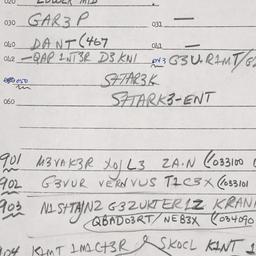 020 LOWER MID
030 GAR3P 031 —
040 DANT (467 041 —
042 -QAP 1NT3R D3KN1 043 G3U.R1MT/G
050 S7TAR3K
060 S7TARK3-ENT
901 M3VAK3R L3 ZA.N (033100
902 G3VUR VERNVUS T1C3X (033101
903 N1S1TAJNZ G3ZUKTER1Z KRAN
(QBADO3RT/NEB3X (034090
904 K1MT 1M1CT3R & SKOCL K1NT 1